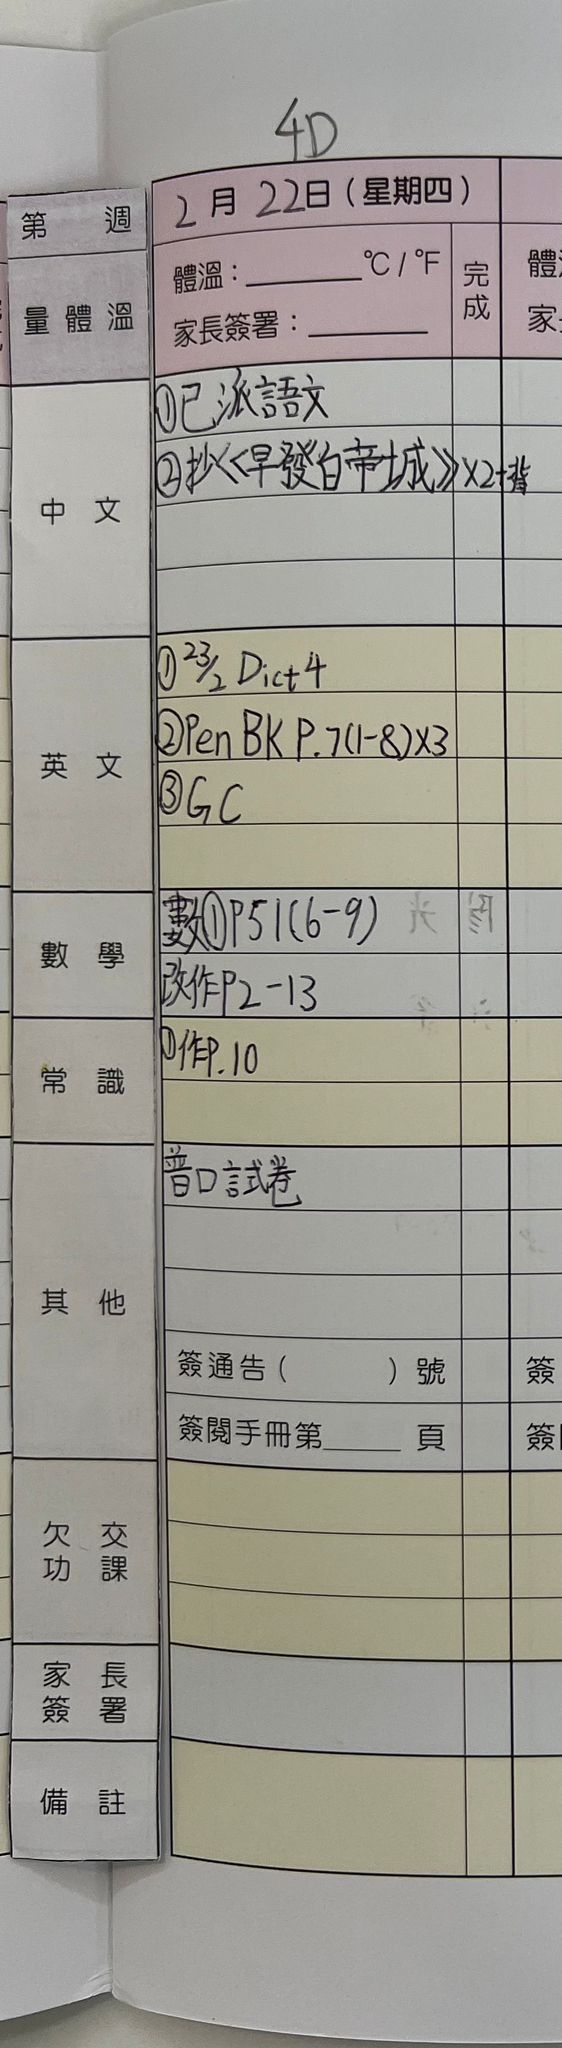 4D
第 週
2月22日(星期四)
量體溫
體溫：______℃/℉
完成
體
家長簽署：______
家
中文
①已派語文
②抄《早發白帝城》x2+背
英文
①23/2 Dict 4
②Pen BK P.7(1-8)x3
③GC
數學
數①P51(6-9)
改作P2-13
常識
①作P.10
其他
普口試卷
簽通告( )號
簽
簽閱手冊第____頁
簽
欠交
功課
家長
簽署
備註